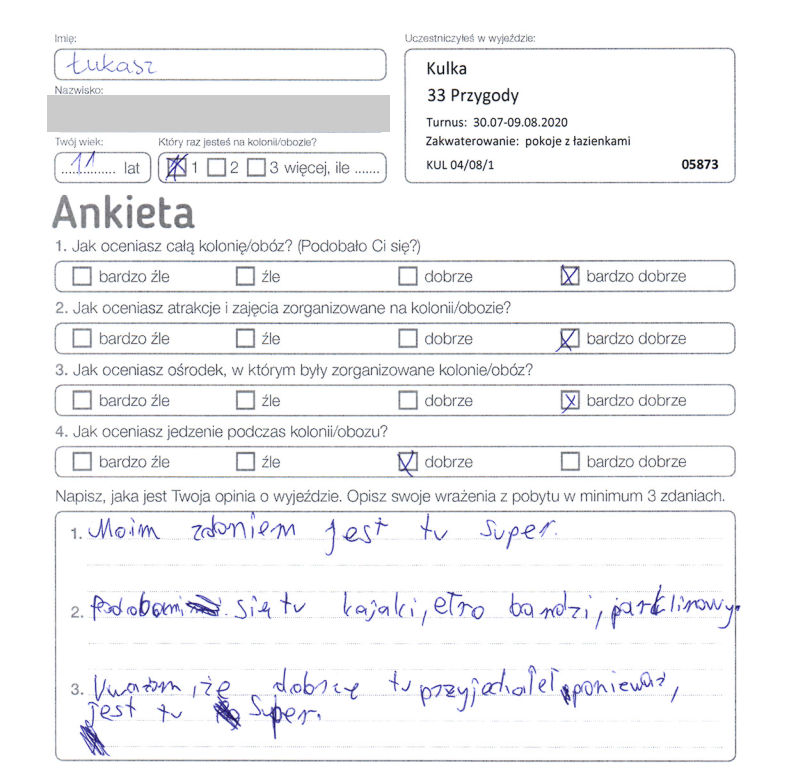 Imię:
Łukasz
Nazwisko:
Twój wiek:
11 lat
Który raz jesteś na kolonii/obozie?
1 2 3 więcej, ile .......
Uczestniczyłeś w wyjeździe:
Kulka
33 Przygody
Turnus: 30.07-09.08.2020
Zakwaterowanie: pokoje z łazienkami
KUL 04/08/1 05873
Ankieta
1. Jak oceniasz całą kolonię/obóz? (Podobało Ci się?)
bardzo źle źle dobrze bardzo dobrze
2. Jak oceniasz atrakcje i zajęcia zorganizowane na kolonii/obozie?
bardzo źle źle dobrze bardzo dobrze
3. Jak oceniasz ośrodek, w którym były zorganizowane kolonie/obóz?
bardzo źle źle dobrze bardzo dobrze
4. Jak oceniasz jedzenie podczas kolonii/obozu?
bardzo źle źle dobrze bardzo dobrze
Napisz, jaka jest Twoja opinia o wyjeździe. Opisz swoje wrażenia z pobytu w minimum 3 zdaniach.
1. Moim zdaniem jest tu super.
2. Podobami się tu kajaki, etro bandzi, park linowy.
3. Uważam, że dobrze tu przyjechałeł ponieważ,
jest tu Super.